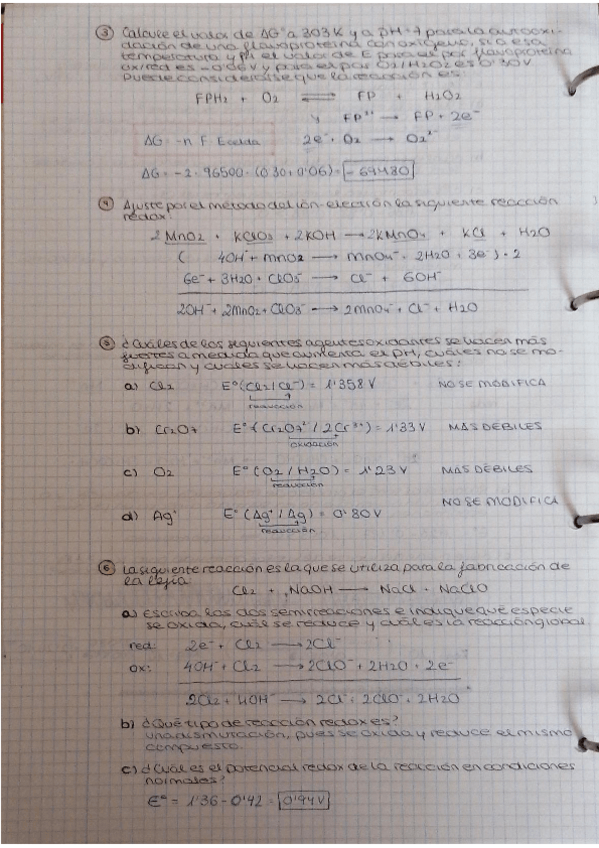 ③ Calcule el valor de ΔG° a 303K y a pH=7 para la autooxi-
dación de una flavoproteína con oxígeno, si a esa
temperatura y pH el valor de E para el par flavoproteína
ox/red es -0'06V y para el par O2/H2O2 es 0'30V.
Puede considerarse que la reacción es:
FPH2 + O2 ⇌ FP + H2O2
y FP²⁻ → FP + 2e⁻
ΔG = -n F Ecelda 2e⁻ + O2 → O2²⁻
ΔG = -2 · 96500 · (0'30 + 0'06) = -69480
④ Ajuste por el método del ión-electrón la siguiente reacción
redox:
2 MnO2 + KClO3 + 2KOH → 2KMnO4 + KCl + H2O
( 4OH⁻ + MnO2 → MnO4⁻ + 2H2O + 3e⁻ ) · 2
6e⁻ + 3H2O + ClO3⁻ → Cl⁻ + 6OH⁻
2OH⁻ + 2MnO2 + ClO3⁻ → 2MnO4⁻ + Cl⁻ + H2O
⑤ ¿Cuáles de los siguientes agentes oxidantes se hacen más
fuertes a medida que aumenta el pH, cuáles no se mo-
difican y cuáles se hacen más débiles?
a) Cl2 E°(Cl2/Cl⁻) = 1'358 V NO SE MODIFICA
reducción
b) Cr2O7 E°(Cr2O7²⁻/2Cr³⁺) = 1'33 V MÁS DÉBILES
oxidación
c) O2 E°(O2/H2O) = 1'23 V MÁS DÉBILES
reducción
NO SE MODIFICA
d) Ag⁺ E°(Ag⁺/Ag) = 0'80 V
reducción
⑥ La siguiente reacción es la que se utiliza para la fabricación de
la lejía
Cl2 + NaOH → NaCl + NaClO
a) Escriba las dos semirreaciones e indique qué especie
se oxida, cuál se reduce y cuál es la reacción global.
red: 2e⁻ + Cl2 → 2Cl⁻
ox: 4OH⁻ + Cl2 → 2ClO⁻ + 2H2O + 2e⁻
2Cl2 + 4OH⁻ → 2Cl⁻ + 2ClO⁻ + 2H2O
b) ¿Qué tipo de reacción redox es?
una dismutación, pues se oxida y reduce el mismo
compuesto.
c) ¿Cuál es el potencial redox de la reacción en condiciones
normales?
E° = 1'36 - 0'42 = 0'94V